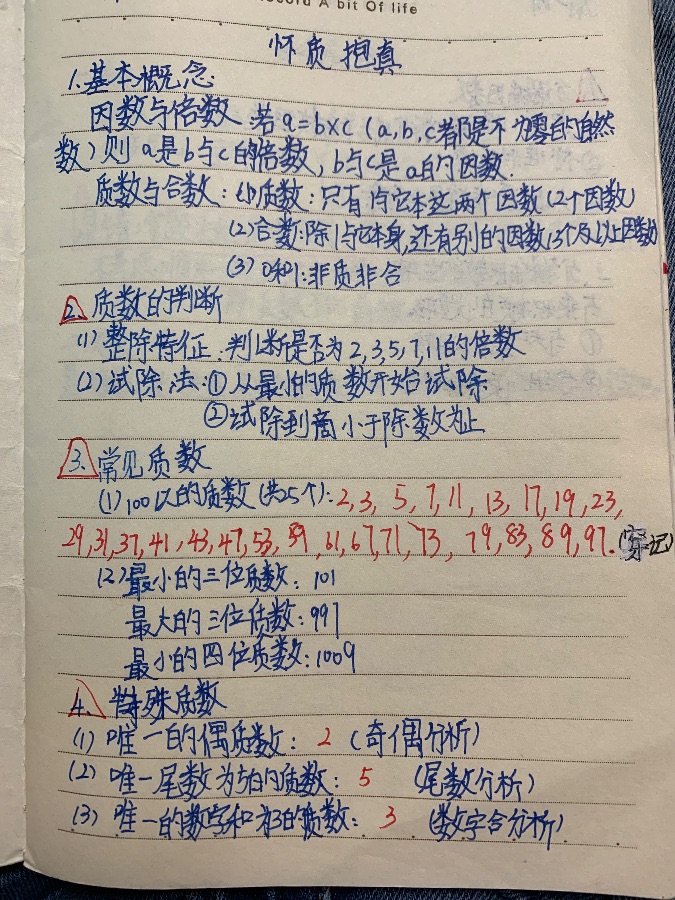 Record A bit Of life
怀质抱真
1.基本概念
因数与倍数 若a=b×c(a,b,c都是不为零的自然
数)则 a是b与c的倍数,b与c是a的因数.
质数与合数:(1)质数:只有1与它本这两个因数(2个因数)
(2)合数:除1与它本身,还有别的因数(3个及以上因数)
(3)0和1:非质非合
2.质数的判断
(1)整除特征.判断是否为2,3,5,7,11的倍数
(2)试除法:①从最小的质数开始试除
②试除到商小于除数为止
3.常见质数
(1)100以的质数(共25个):2,3,5,7,11,13,17,19,23,
29,31,37,41,43,47,53,59,61,67,71,73,79,83,89,97.(记)
(2)最小的三位质数:101
最大的三位质数:997
最小的四位质数:1009
4.特殊质数
(1)唯一的偶质数:2(奇偶分析)
(2)唯一尾数为5的质数:5(尾数分析)
(3)唯一的数字和为3的质数:3(数字合分析)